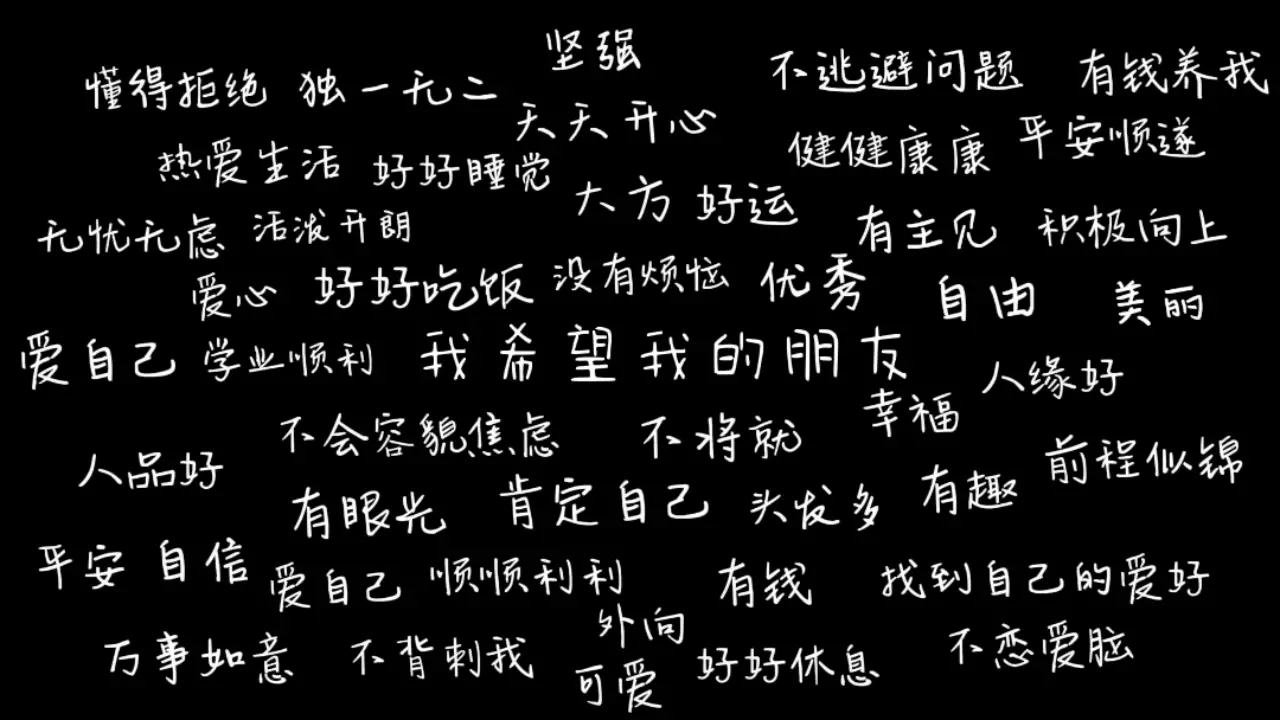 坚强
懂得拒绝 独一无二
不逃避问题 有钱养我
天天开心
热爱生活 好好睡觉
健健康康 平安顺遂
大方 好运
无忧无虑 活泼开朗
有主见 积极向上
爱心 好好吃饭 没有烦恼 优秀
自由 美丽
爱自己 学业顺利 我希望我的朋友
人缘好
幸福
不会容貌焦虑 不将就
人品好
前程似锦
有眼光 肯定自己 头发多 有趣
平安 自信
爱自己 顺顺利利 有钱 找到自己的爱好
外向
万事如意 不背刺我
可爱 好好休息 不恋爱脑